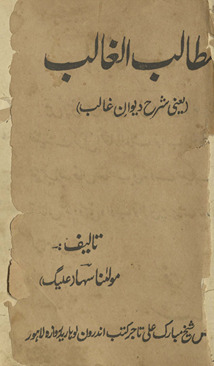 مطالب الغالب
(یعنی شرح دیوان غالب)
تالیف:۔
مولٰنا سہا (علیگ)
شیخ مبارک علی تاجر کتب اندرون لوہاریدروازہ لاہور